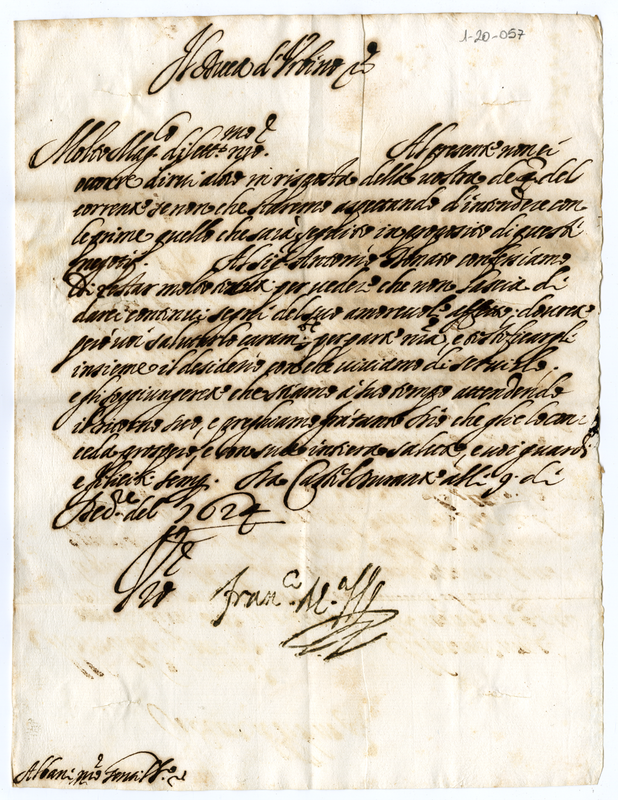 1-20-057
Il Duca d'Urbino &c.
Molto Mag.co dilett.mo n̄ro. Al presente non ci
occorre dirvi altro in risposta della vostra de 4. del
corrente se non che staremo aspettando d'intendere con
le prime quello che sarà seguito in proposito di questi
negotij. Al Sig.r Antonio Donato confessiamo
di restar molto per veder che non lascia di
darci continui segni del suo amorevole affetto: dovrete
però voi salutarlo caram.te per parte n̄ra, e testificargli
insieme il desiderio con che viviamo di servirlo.
e gli soggiungerete che stiamo a suo tempo attendendo
il ritorno suo, e preghiamo frà tanto Dio che glie lo con-
ceda prospero, e con sua intiera salute, e voi guardi
e feliciti sempre. Da Castel Durante alli 9. di
del 1624
Fran.co M.a
Albani n̄ro